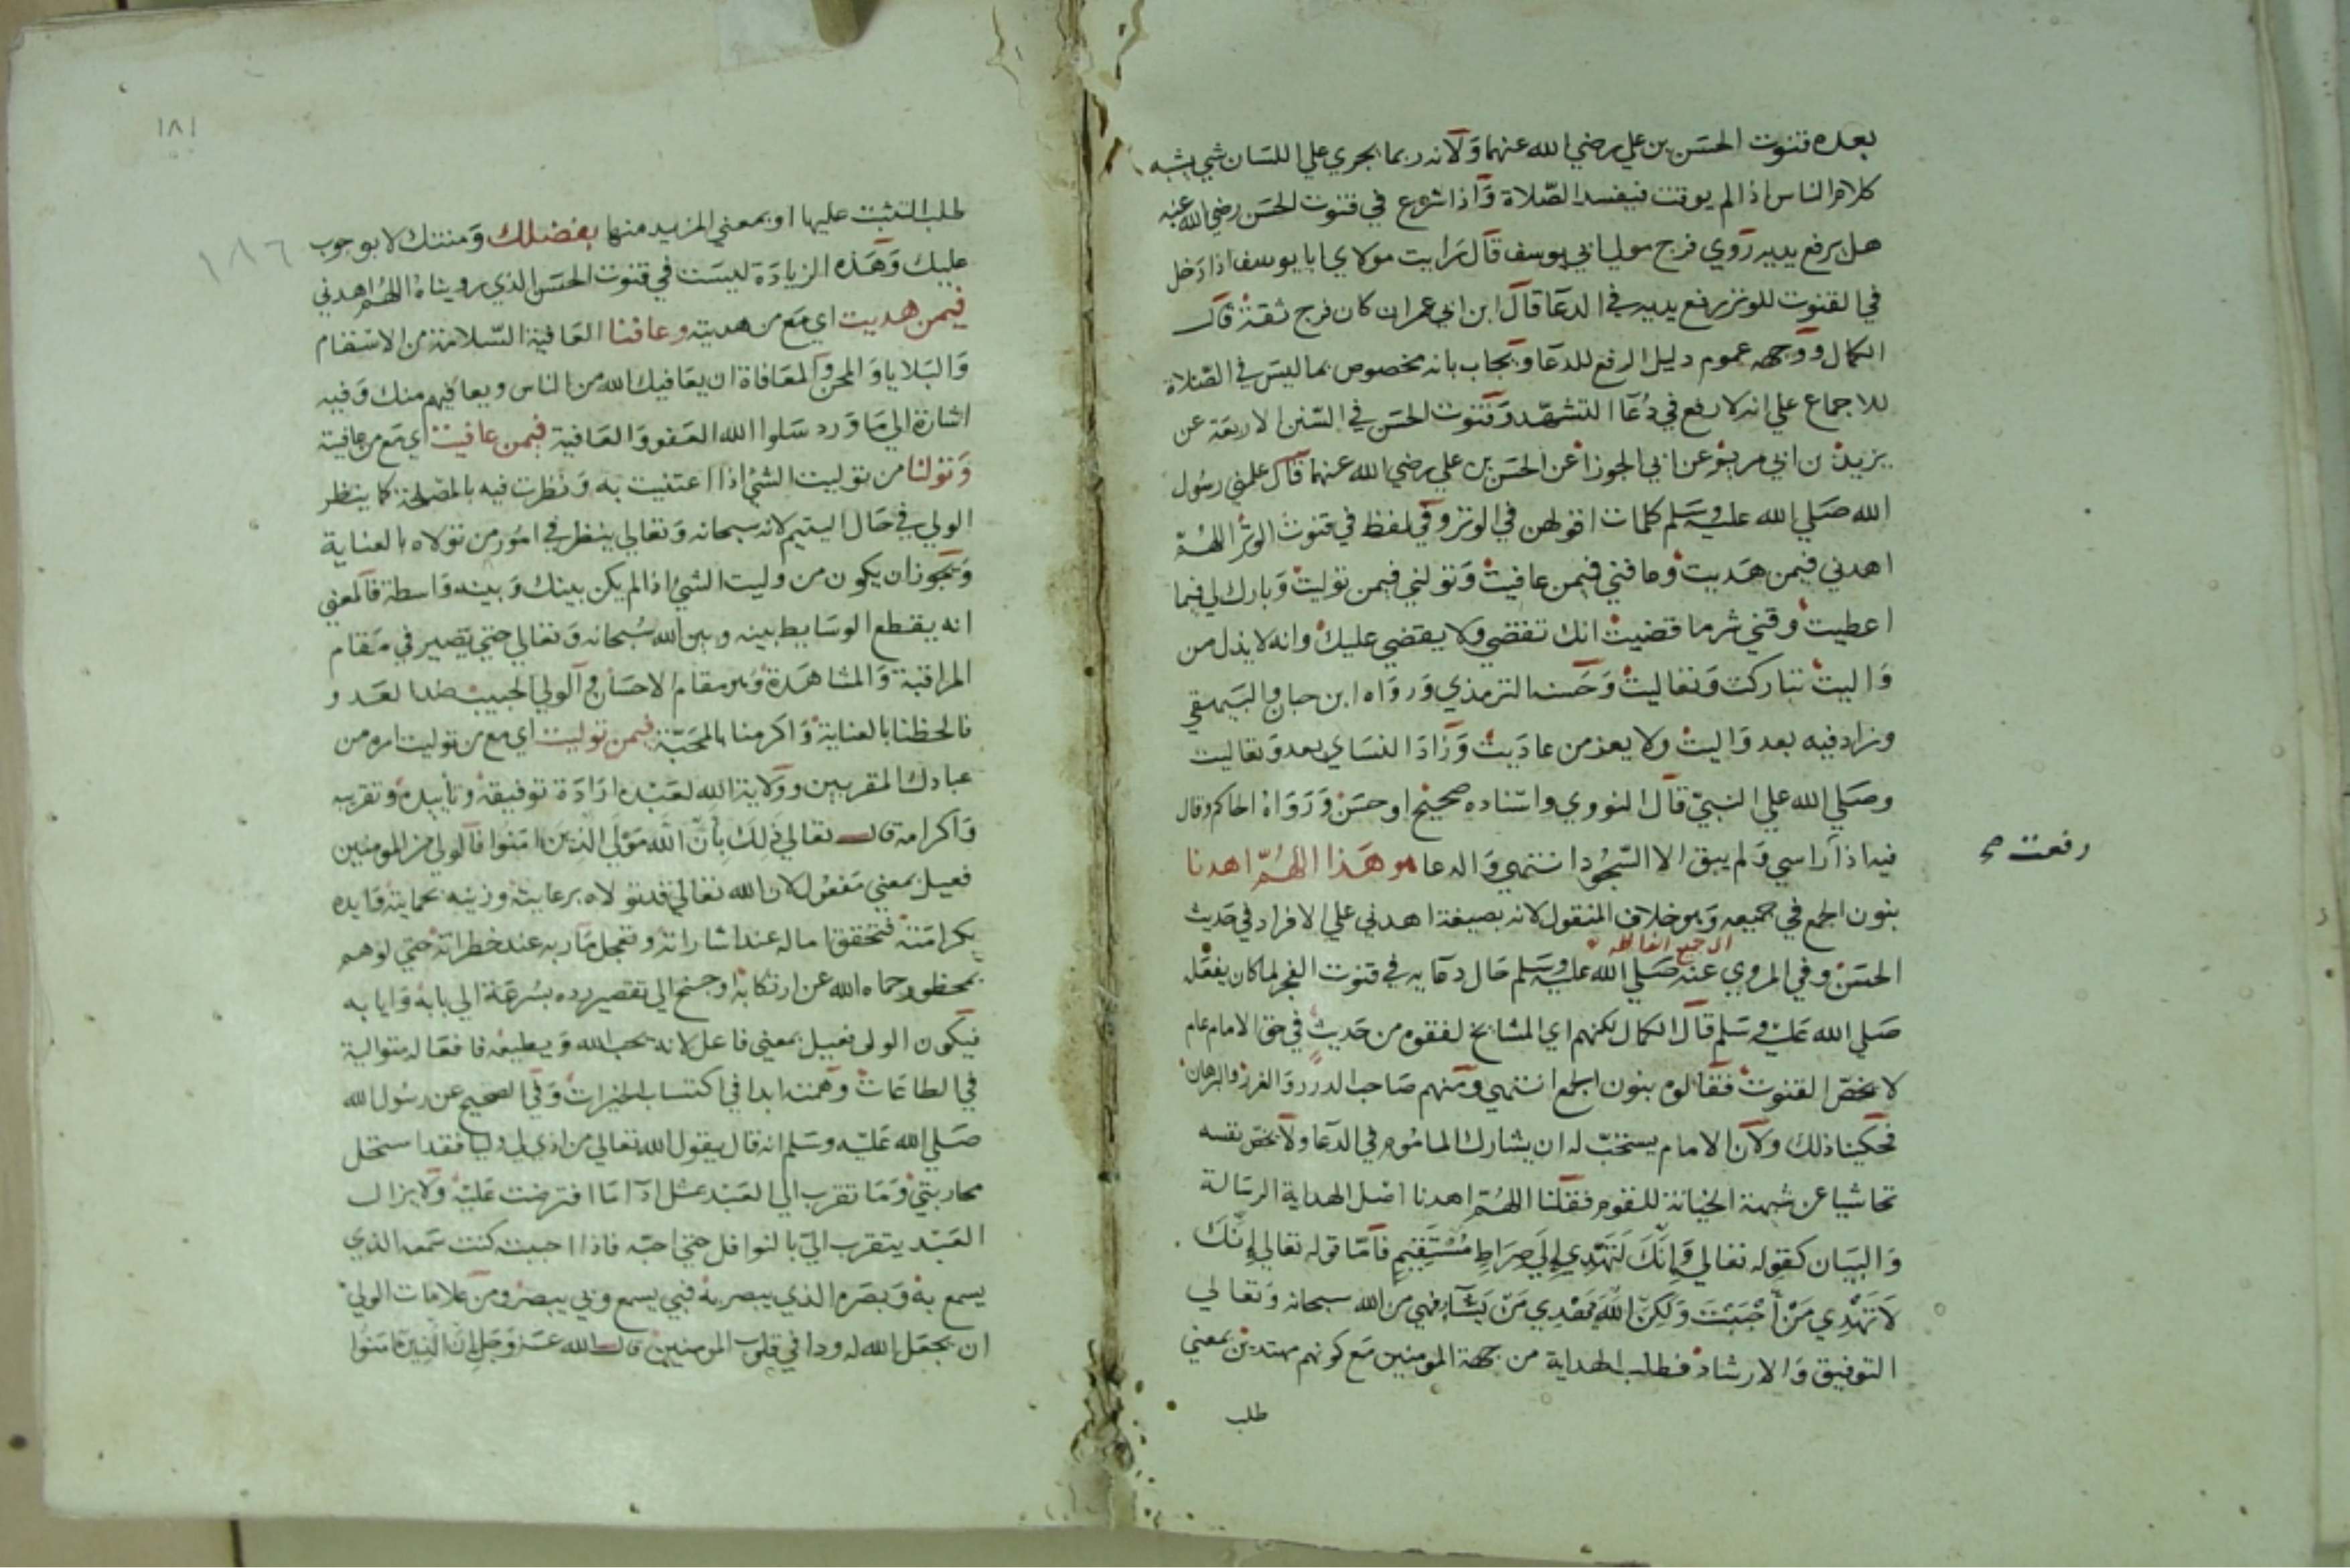 بعده قنوت الحسن بن علي رضي الله عنهما ولانه ربما يجري علي اللسان شي يشبه
كلام الناس اذا لم يوقت فيفسد الصلاة واذا شرع في قنوت الحسن رضي الله عنه
هل يرفع يديه روي فرج مولي ابي يوسف قال رايت مولاي ابا يوسف اذا دخل
في القنوت للوتر رفع يديه في الدعا قال ابن ابي عمران كان فرج ثقة قال
الكمال ووجهه عموم دليل الرفع للدعا ويجاب بانه مخصوص بما ليس في الصلاة
للاجماع علي انه لا رفع في دعا التشهد وقنوت الحسن في السنن الاربعة عن
يزيد بن ابي مريم عن ابي الجوزا عن الحسن بن علي رضي الله عنهما قال علمني رسول
الله صلي الله عليه وسلم كلمات اقولهن في الوتر وفي لفظ في قنوت الوتر اللهم
اهدني فيمن هديت وعافني فيمن عافيت وتولني فيمن توليت وبارك لي فيما
اعطيت وقني شر ما قضيت انك تقضي ولا يقضي عليك وانه لا يذل من
واليت تباركت وتعاليت وحسنه الترمذي ورواه ابن حبان والبيهقي
وزاد فيه بعد واليت ولا يعز من عاديت وزاد النساي بعد وتعاليت
وصلي الله علي النبي قال النووي واسناده صحيح او حسن ورواه الحاكم وقال
فيه اذا راسي ولم يبق الا السجود انتهي والدعا هو هذا اللهم اهدنا
رفعت صح
بنون الجمع في جميعه وهو خلاف المنقول لانه بصيغة اهدني علي الافراد في حديث
الحسن وفي المروي عنه صلي الله عليه وسلم حال دعايه في قنوت الفجر لما كان يفعله
صلي الله عليه وسلم قال الكمال لكنهم اي المشايخ لفقوه من حديث في حق الامام عام
لا يخص القنوت فقالوه بنون الجمع انتهي ومنهم صاحب الدرر والغرر والبرهان
فحكينا ذلك ولان الامام يستحب له ان يشارك الماموم في الدعا ولا يخص نفسه
تحاشيا عن شبهة الخيانة للقوم فقلنا اللهم اهدنا اصل الهداية الرسالة
والبيان كقوله تعالي وَاِنَّكَ لَتَهْدِي اِلَي صِرَاطٍ مُسْتَقِيمٍ فاما قوله تعالي اِنَّكَ
لَا تَهْدِي مَنْ أَحْبَبْتَ وَلَكِنَّ اللَّهَ يَهْدِي مَنْ يَشَآءُ فهي من الله سبحانه وتعالي
التوفيق والارشاد فطلب الهداية من جهة المومنين مع كونهم مهتدين بمعني
طلب
١٨١
١٨٦
طلب التثبت عليها او بمعني المزيد منها بفضلك ومنتك لا بوجوب
عليك وهذه الزيادة ليست في قنوت الحسن الذي رويناه اللهم اهدني
فيمن هديت اي مع من هديته وعافنا العافية السلامة من الاسقام
والبلايا والمحن والمعافاة ان يعافيك الله من الناس ويعافيهم منك وفيه
اشارة الي ما ورد سلوا الله العفو والعافية فيمن عافيت اي مع من عافيته
وتولنا من توليت الشيء اذا اعتنيت به ونظرت فيه بالمصلحة كما ينظر
الولي في حال اليتيم لانه سبحانه وتعالي ينظر في امور من تولاه بالعناية
ويجوز ان يكون من وليت الشيء اذا لم يكن بينك وبينه واسطة فالمعني
انه يقطع الوسايط بينه وبين الله سبحانه وتعالي حتي يصير في مقام
المراقبة والمشاهدة وهو مقام الاحسان والولي الحبيب ضد العدو
فالحظنا بالعناية واكرمنا بالمحبة فيمن توليت اي مع من توليت امره من
عبادك المقربين وولاية الله لعبده ارادة توفيقه وتأييده وتقريبه
واكرامه قال تعالي ذَلِكَ بِأَنَّ اللَّهَ مَوْلَي الَّذِينَ اٰمَنُوا فالولي من المومنين
فعيل بمعني مفعول لان الله تعالي قد تولاه برعايته وزينه بحمايته وايده
بكرامته فتحقق اماله عند اشاراته وتعجل مآربه عند خطراته حتي لو هم
بمحظور حماه الله عن ارتكابه او جنح الي تقصير رده بسرعة الي بابه وايابه
فيكون الولي فعيل بمعني فاعل لانه يحب الله ويطيعه فافعاله متوالية
في الطاعات وهمته ابدا في اكتساب الخيرات وفي الصحيح عن رسول الله
صلي الله عليه وسلم انه قال يقول الله تعالي من اذي لي وليا فقد استحل
محاربتي وما تقرب الي العبد بمثل اداء ما افترضت عليه ولا يزال
العبد يتقرب الي بالنوافل حتي احبه فاذا احببته كنت سمعه الذي
يسمع به وبصره الذي يبصر به فبي يسمع وبي يبصر ومن علامات الولي
ان يجعل الله له ودا في قلوب المومنين قال الله عز وجل اِنَّ الَّذِينَ اٰمَنُوا